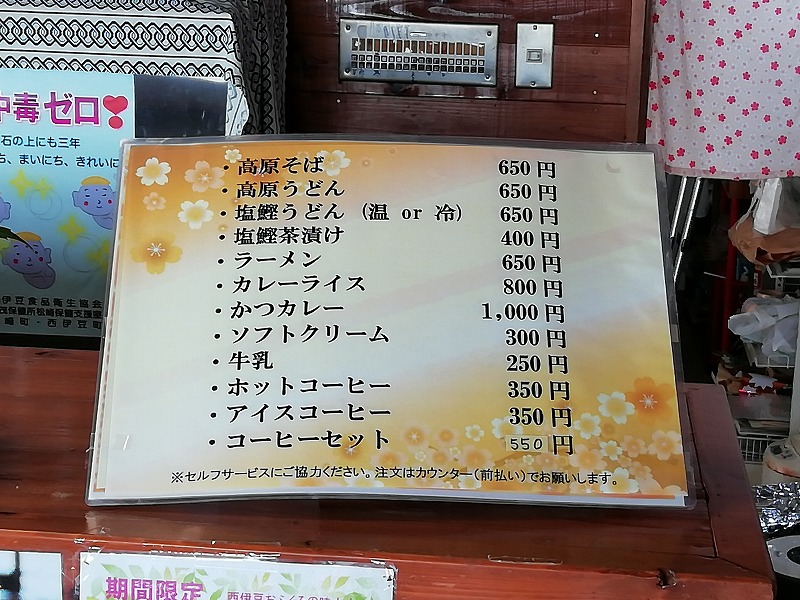 中毒ゼロ
石の上にも三年
ち、まいにち、きれいに
伊豆食品衛生協会
崎町・西伊豆町
・高原そば 650円
・高原うどん 650円
・塩鰹うどん（温 or 冷） 650円
・塩鰹茶漬け 400円
・ラーメン 650円
・カレーライス 800円
・かつカレー 1,000円
・ソフトクリーム 300円
・牛乳 250円
・ホットコーヒー 350円
・アイスコーヒー 350円
・コーヒーセット 550円
※セルフサービスにご協力ください。注文はカウンター（前払い）でお願いします。
期間限定